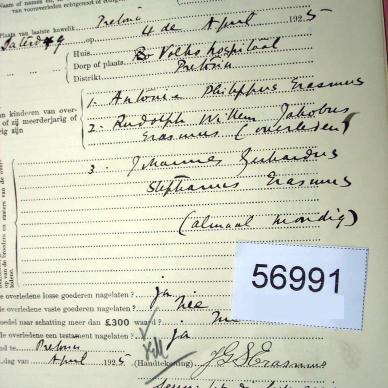 van voorverleden echtgenoot of echtgenote
Plaats van laatste huwelik Pretoria
Zaterdag, op 4 de April 1925
Huis Volks hospitaal
Dorp of plaats
Distrikt Pretoria
1. Antonie Philippus Erasmus
an kinderen van over-
of zij meerderjarig of
rig zijn
2. Rudolph Willem Jakobus
Erasmus (overleden)
3. Johannes Gerhardus
Stephanus Erasmus
(almaal mondig)
56991
e overledene losse goederen nagelaten? Ja
e overledene vaste goederen nagelaten? nee
oedel naar schatting meer dan £300 waard?
e overledene een testament nagelaten? Ja
d te Pretoria
dag van April 1925 (Handtekening) J G S Erasmus